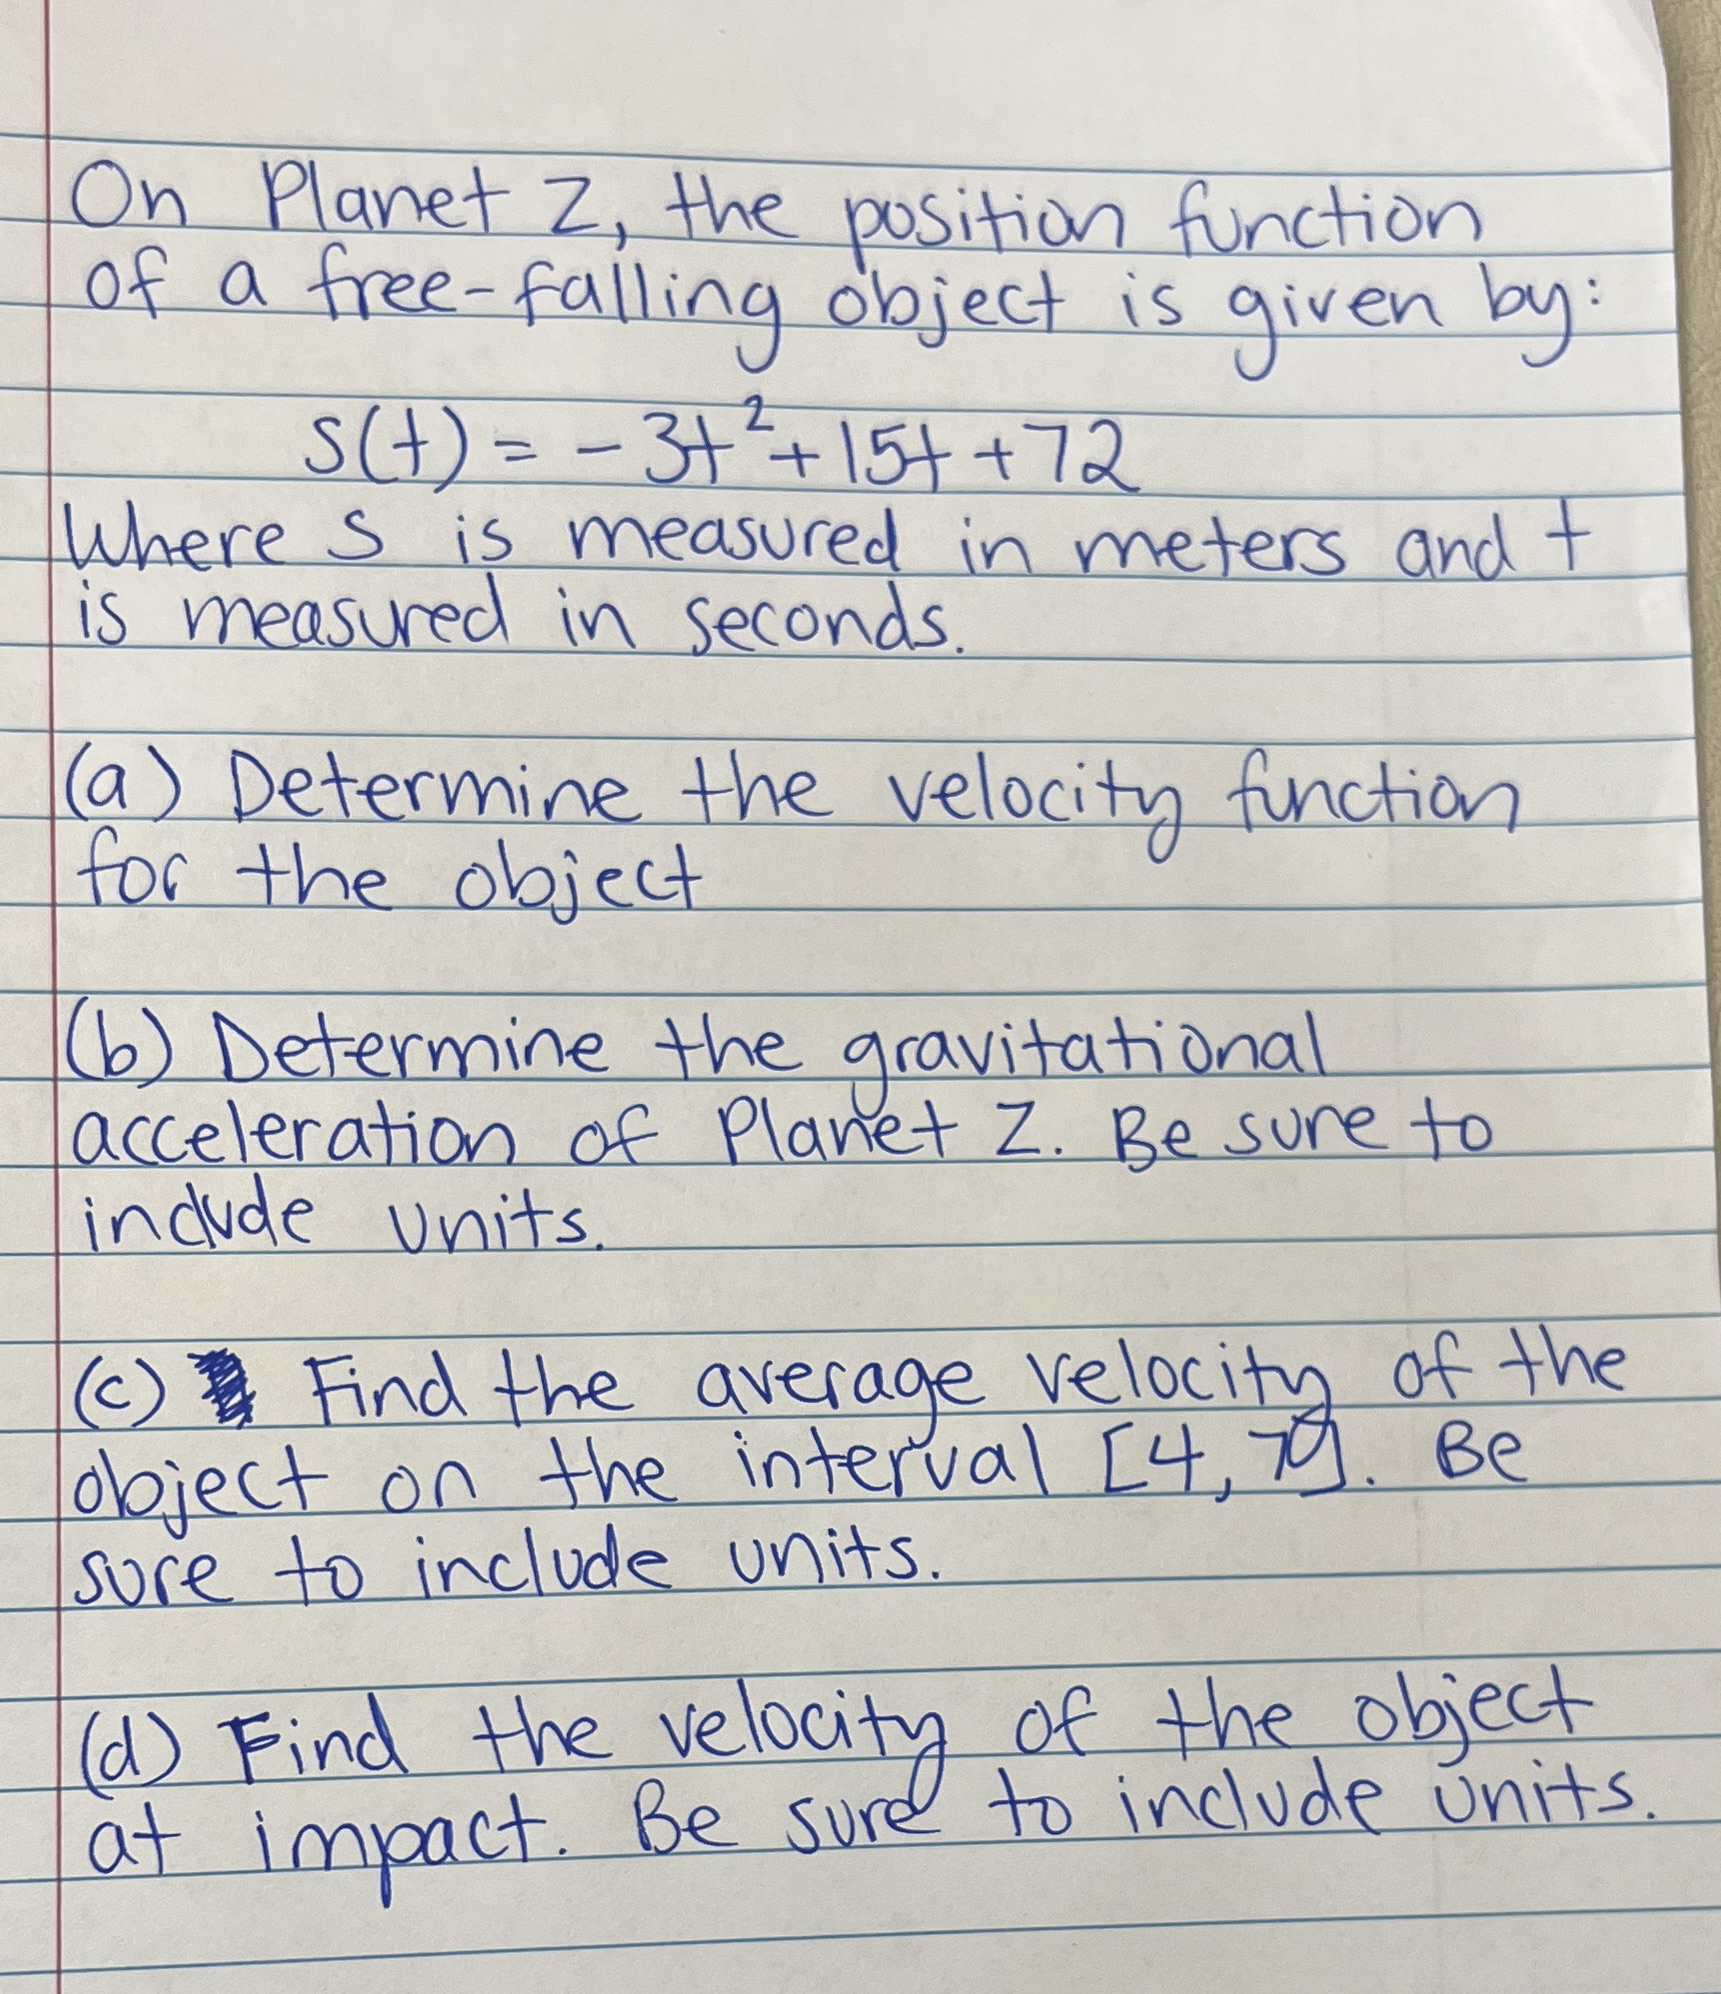 On Planet Z, the position function
of a free-falling object is given by:
s(t) = -3t²+15t+72
Where s is measured in meters and t
is measured in seconds.
(a) Determine the velocity function
for the object
(b) Determine the gravitational
acceleration of Planet Z. Be sure to
include units.
(c) Find the average velocity of the
object on the interval [4, 7]. Be
sure to include units.
(d) Find the velocity of the object
at impact. Be sure to include units.